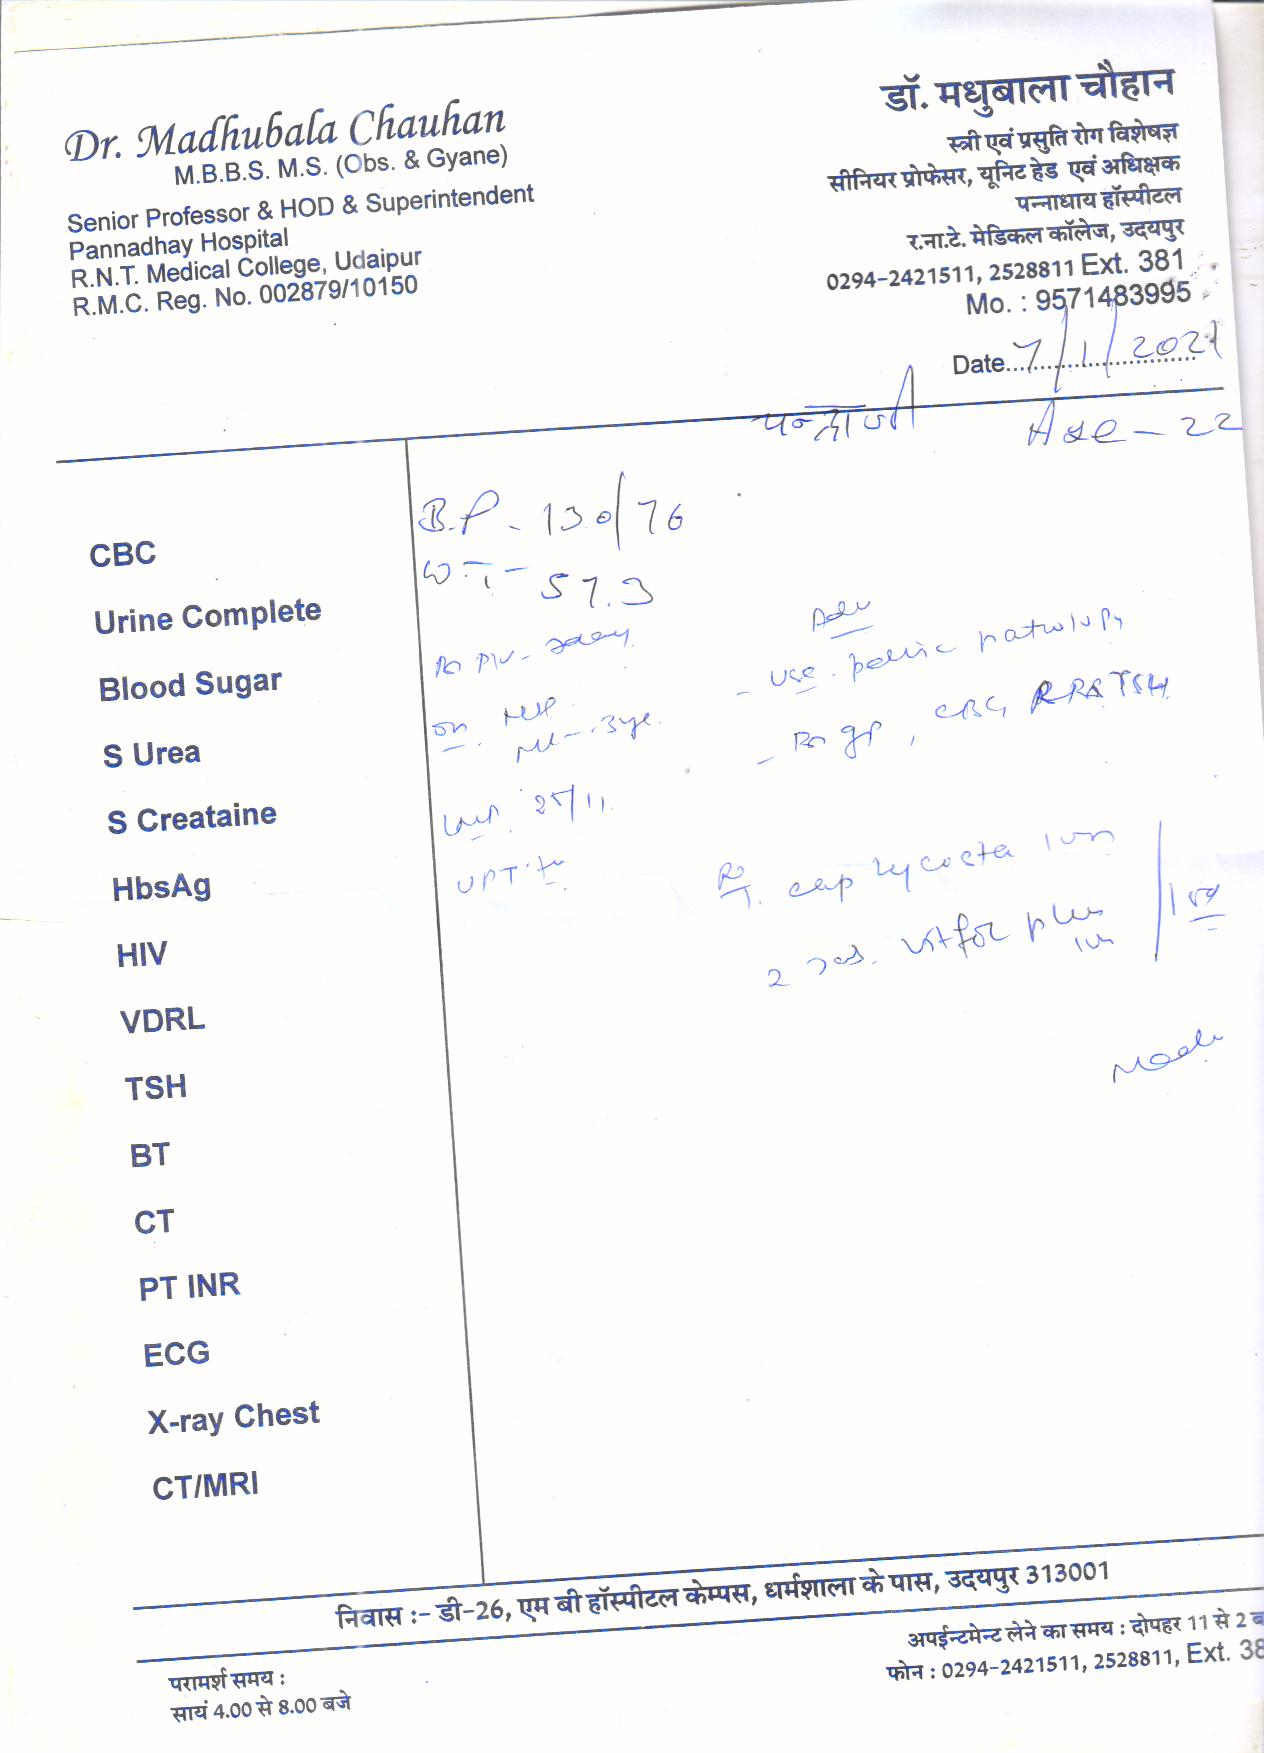 Dr. Madhubala Chauhan
M.B.B.S. M.S. (Obs. & Gyane)
Senior Professor & HOD & Superintendent
Pannadhay Hospital
R.N.T. Medical College, Udaipur
R.M.C. Reg. No. 002879/10150
डॉ. मधुबाला चौहान
स्त्री एवं प्रसुति रोग विशेषज्ञ
सीनियर प्रोफेसर, यूनिट हेड एवं अधिक्षक
पन्नाधाय हॉस्पीटल
र.ना.टे. मेडिकल कॉलेज, उदयपुर
0294-2421511, 2528811 Ext. 381
Mo. : 9571483995
Date 7/1/2021
Age - 22
CBC
Urine Complete
Blood Sugar
S Urea
S Creataine
HbsAg
HIV
VDRL
TSH
BT
CT
PT INR
ECG
X-ray Chest
CT/MRI
B.P - 130/76
WT - 57.3
25/11
UPT
Adv
- pelvic
- CBC, TSH
cap
2 plus
निवास :- डी-26, एम बी हॉस्पीटल केम्पस, धर्मशाला के पास, उदयपुर 313001
परामर्श समय :
सायं 4.00 से 8.00 बजे
अपईन्टमेन्ट लेने का समय : दोपहर 11 से 2 ब
फोन : 0294-2421511, 2528811, Ext. 38